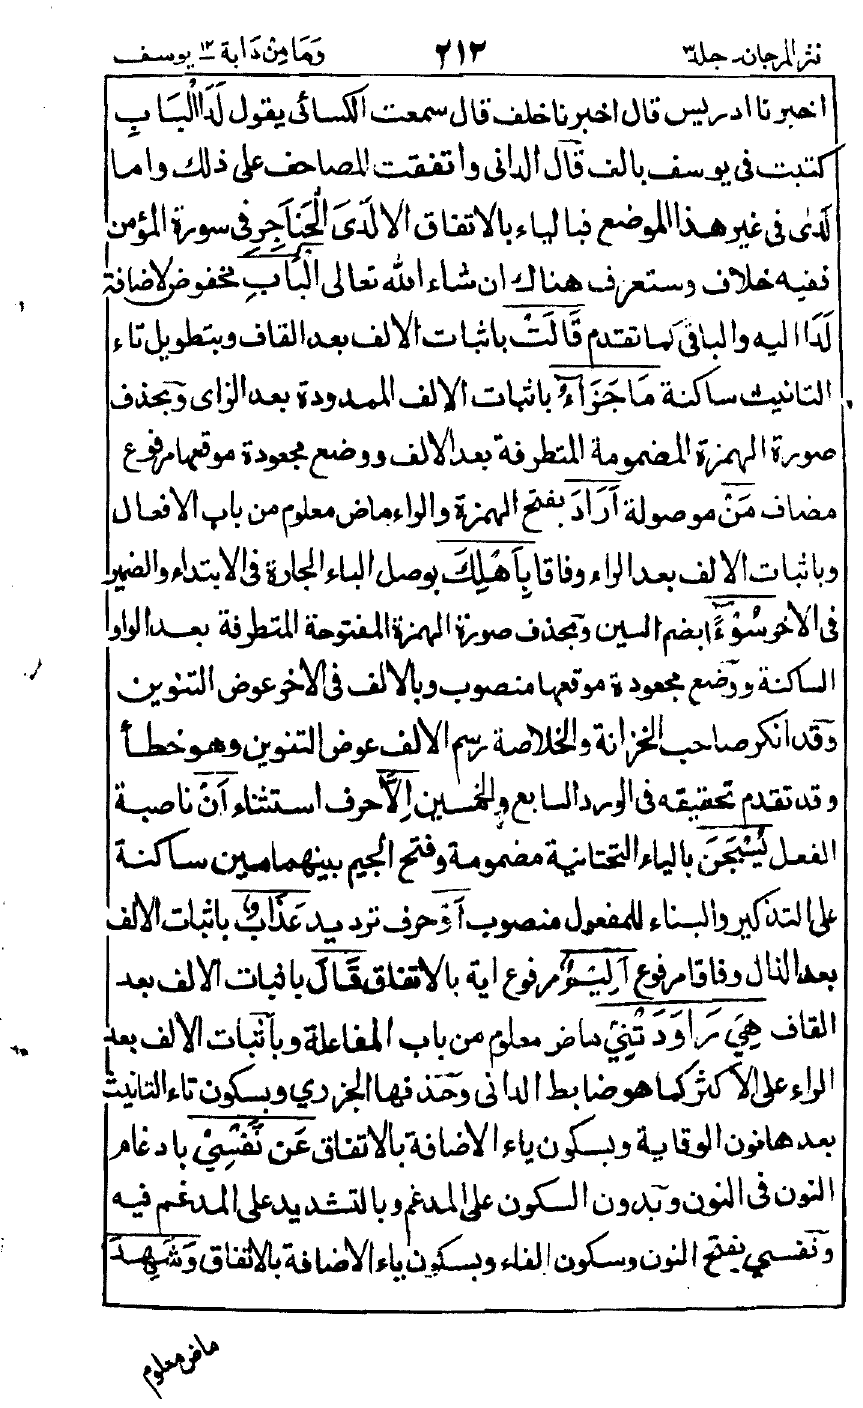 نثر المرجان۔ جلد۳ ۲۱۲ وَمَا مِنْ دَابة ۱۲ يوسف
اخبرنا ادريس قال اخبرنا خلف قال سمعت الكسائى يقول لَدَا الْبَابِ
كتبت فى يوسف بالف قال الدانى واتفقت المصاحف على ذلك واما
لَدٰى فى غير هذا الموضع فبالياء بالاتفاق الا لَدَى الْحَنَاجِرِ فى سورة المؤمن
ففيه خلاف وستعرف هناك ان شاء الله تعالى الْبَابِ مخفوض لاضافة
لَدَا اليه والباقى كما تقدم قَالَتْ باثبات الالف بعد القاف وبتطويل تاء
التانيث ساكنة مَا جَزَآءُ باثبات الالف الممدودة بعد الزاى وبحذف
صورة الهمزة المضمومة المتطرفة بعد الالف ووضع مجعودة موقعها مرفوع
مضاف مَنْ موصولة اَرَادَ بفتح الهمزة والراء ماض معلوم من باب الافعال
وباثبات الالف بعد الراء وفاقا بِاَهْلِكَ بوصل الباء الجارة فى الابتداء والضمير
فى الاخر سُوْٓءًا بضم السين وبحذف صورة الهمزة المفتوحة المتطرفة بعد الواو
الساكنة ووضع مجعودة موقعها منصوب وبالالف فى الاخر عوض التنوين
وقد انكر صاحب الخزانة والخلاصة رسم الالف عوض التنوين وهو خطأ
وقد تقدم تحقيقه فى الورد السابع والخمسين اِلَّا حرف استثناء اَنْ ناصبة
الفعل يُسْجَنَ بالياء التحتانية مضمومة وفتح الجيم بينهما سين ساكنة
على التذكير والبناء للمفعول منصوب اَوْ حرف ترديد عَذَابٌ باثبات الالف
بعد الذال وفاقا مرفوع اَلِيْمٌ مرفوع اية بالاتفاق قَالَ باثبات الالف بعد
القاف هِىَ رَاوَدَتْنِىْ ماض معلوم من باب المفاعلة وباثبات الالف بعد
الراء على الاكثر كما هو ضابط الدانى وحذفها الجزرى وبسكون تاء التانيث
بعدها نون الوقاية وبسكون ياء الاضافة بالاتفاق عَنْ نَّفْسِىْ بادغام
النون فى النون وبدون السكون على المدغم وبالتشديد على المدغم فيه
ونفسى بفتح النون وسكون الفاء وبسكون ياء الاضافة بالاتفاق وَشَهِدَ
ماض معلوم